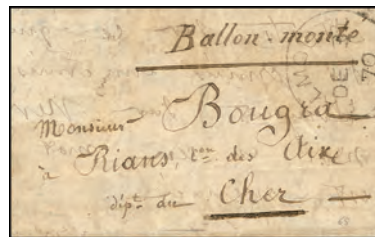 Ballon monté
Monsieur Bougra
à Rians, ton des Aix
dépt du Cher
DE
70